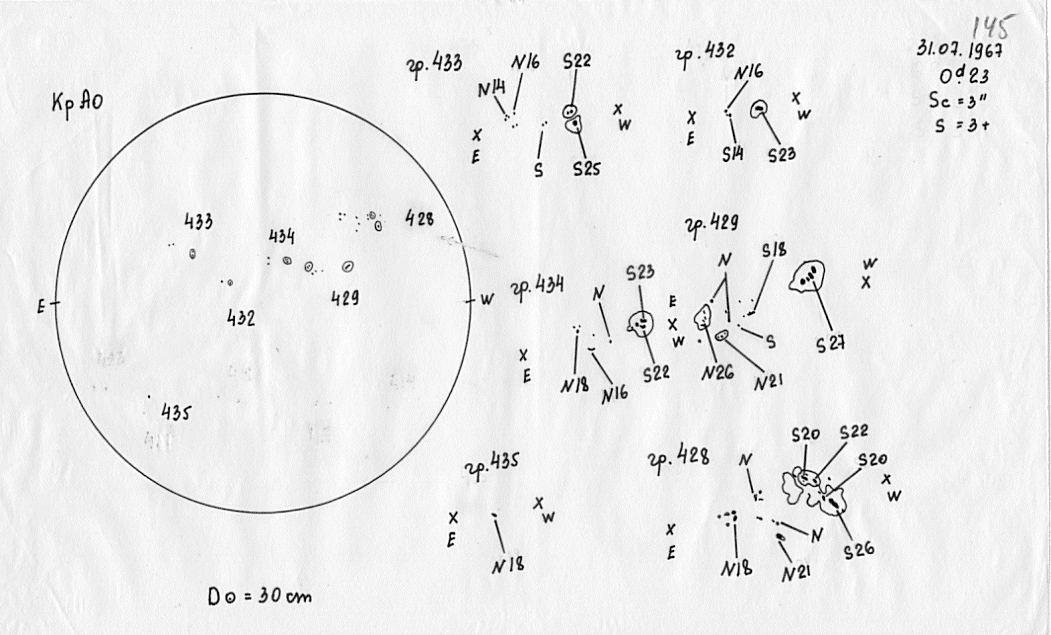 145
31.07.1967
0ᵈ.23
Sc = 3"
S = 3+
КрАО
433
434
428
432
429
435
E
W
D⊙ = 30 cm
гр. 433
N14
N16
S22
X
E
S
S25
X
W
гр. 432
N16
X
E
S14
S23
X
W
гр. 434
N
S23
X
E
N18
N16
S22
X
W
гр. 429
N
S18
E
N26
N21
S
S27
W
X
гр. 435
X
E
N18
X
W
гр. 428
N
S20
S22
S20
X
E
N18
N21
N
S26
X
W